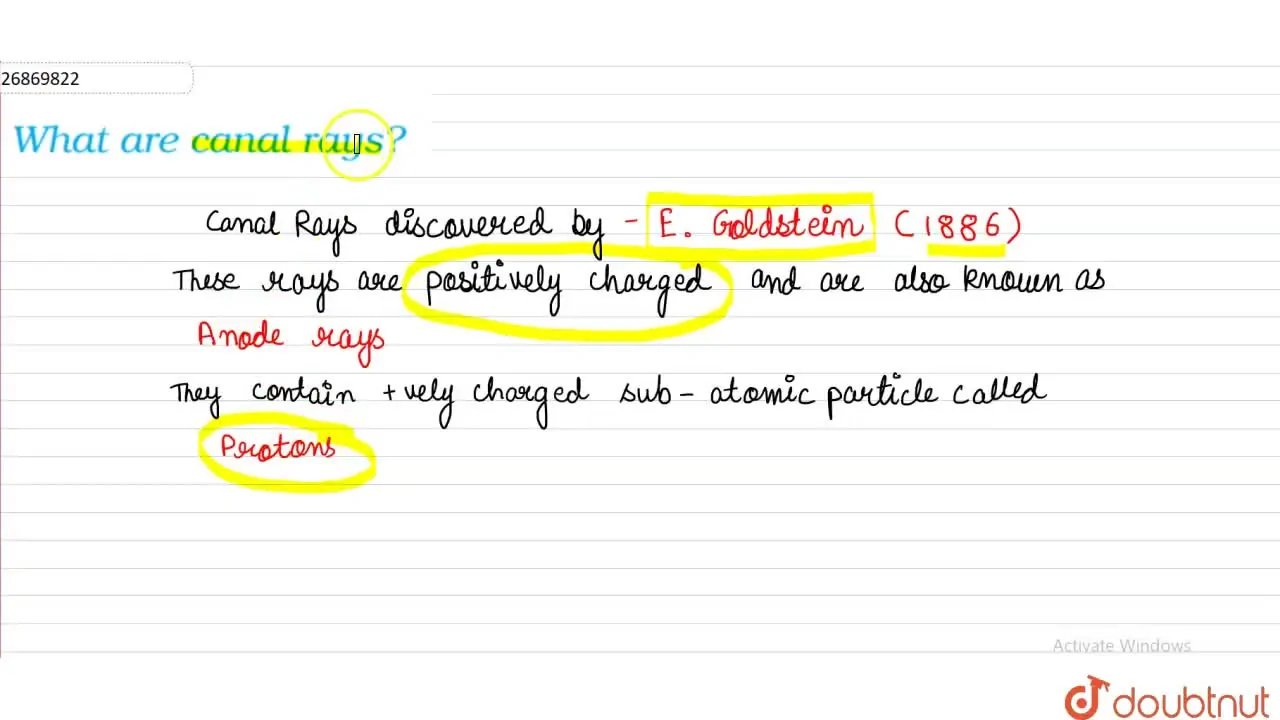 26869822
What are canal rays?
Canal Rays discovered by - E. Goldstein (1886)
These rays are positively charged and are also known as
Anode rays
They contain +vely charged sub-atomic particle called
Protons
Activate Windows
doubtnut